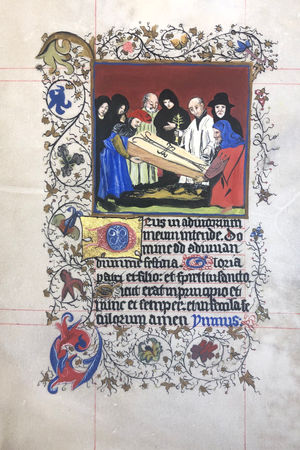 Deus in adiutorium
meum intende. Do
mine ad adiuvan
dum me festina Gloria
patri et filio: et spiritui sancto
sicut erat in principio et
nunc et semper: et in secula se
culorum amen Primus.